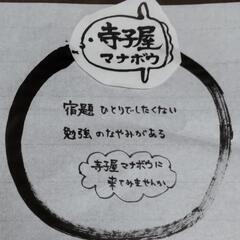 寺子屋
マナボウ
宿題 ひとりでしたくない
勉強のなやみがある
寺子屋マナボウに
来てみませんか